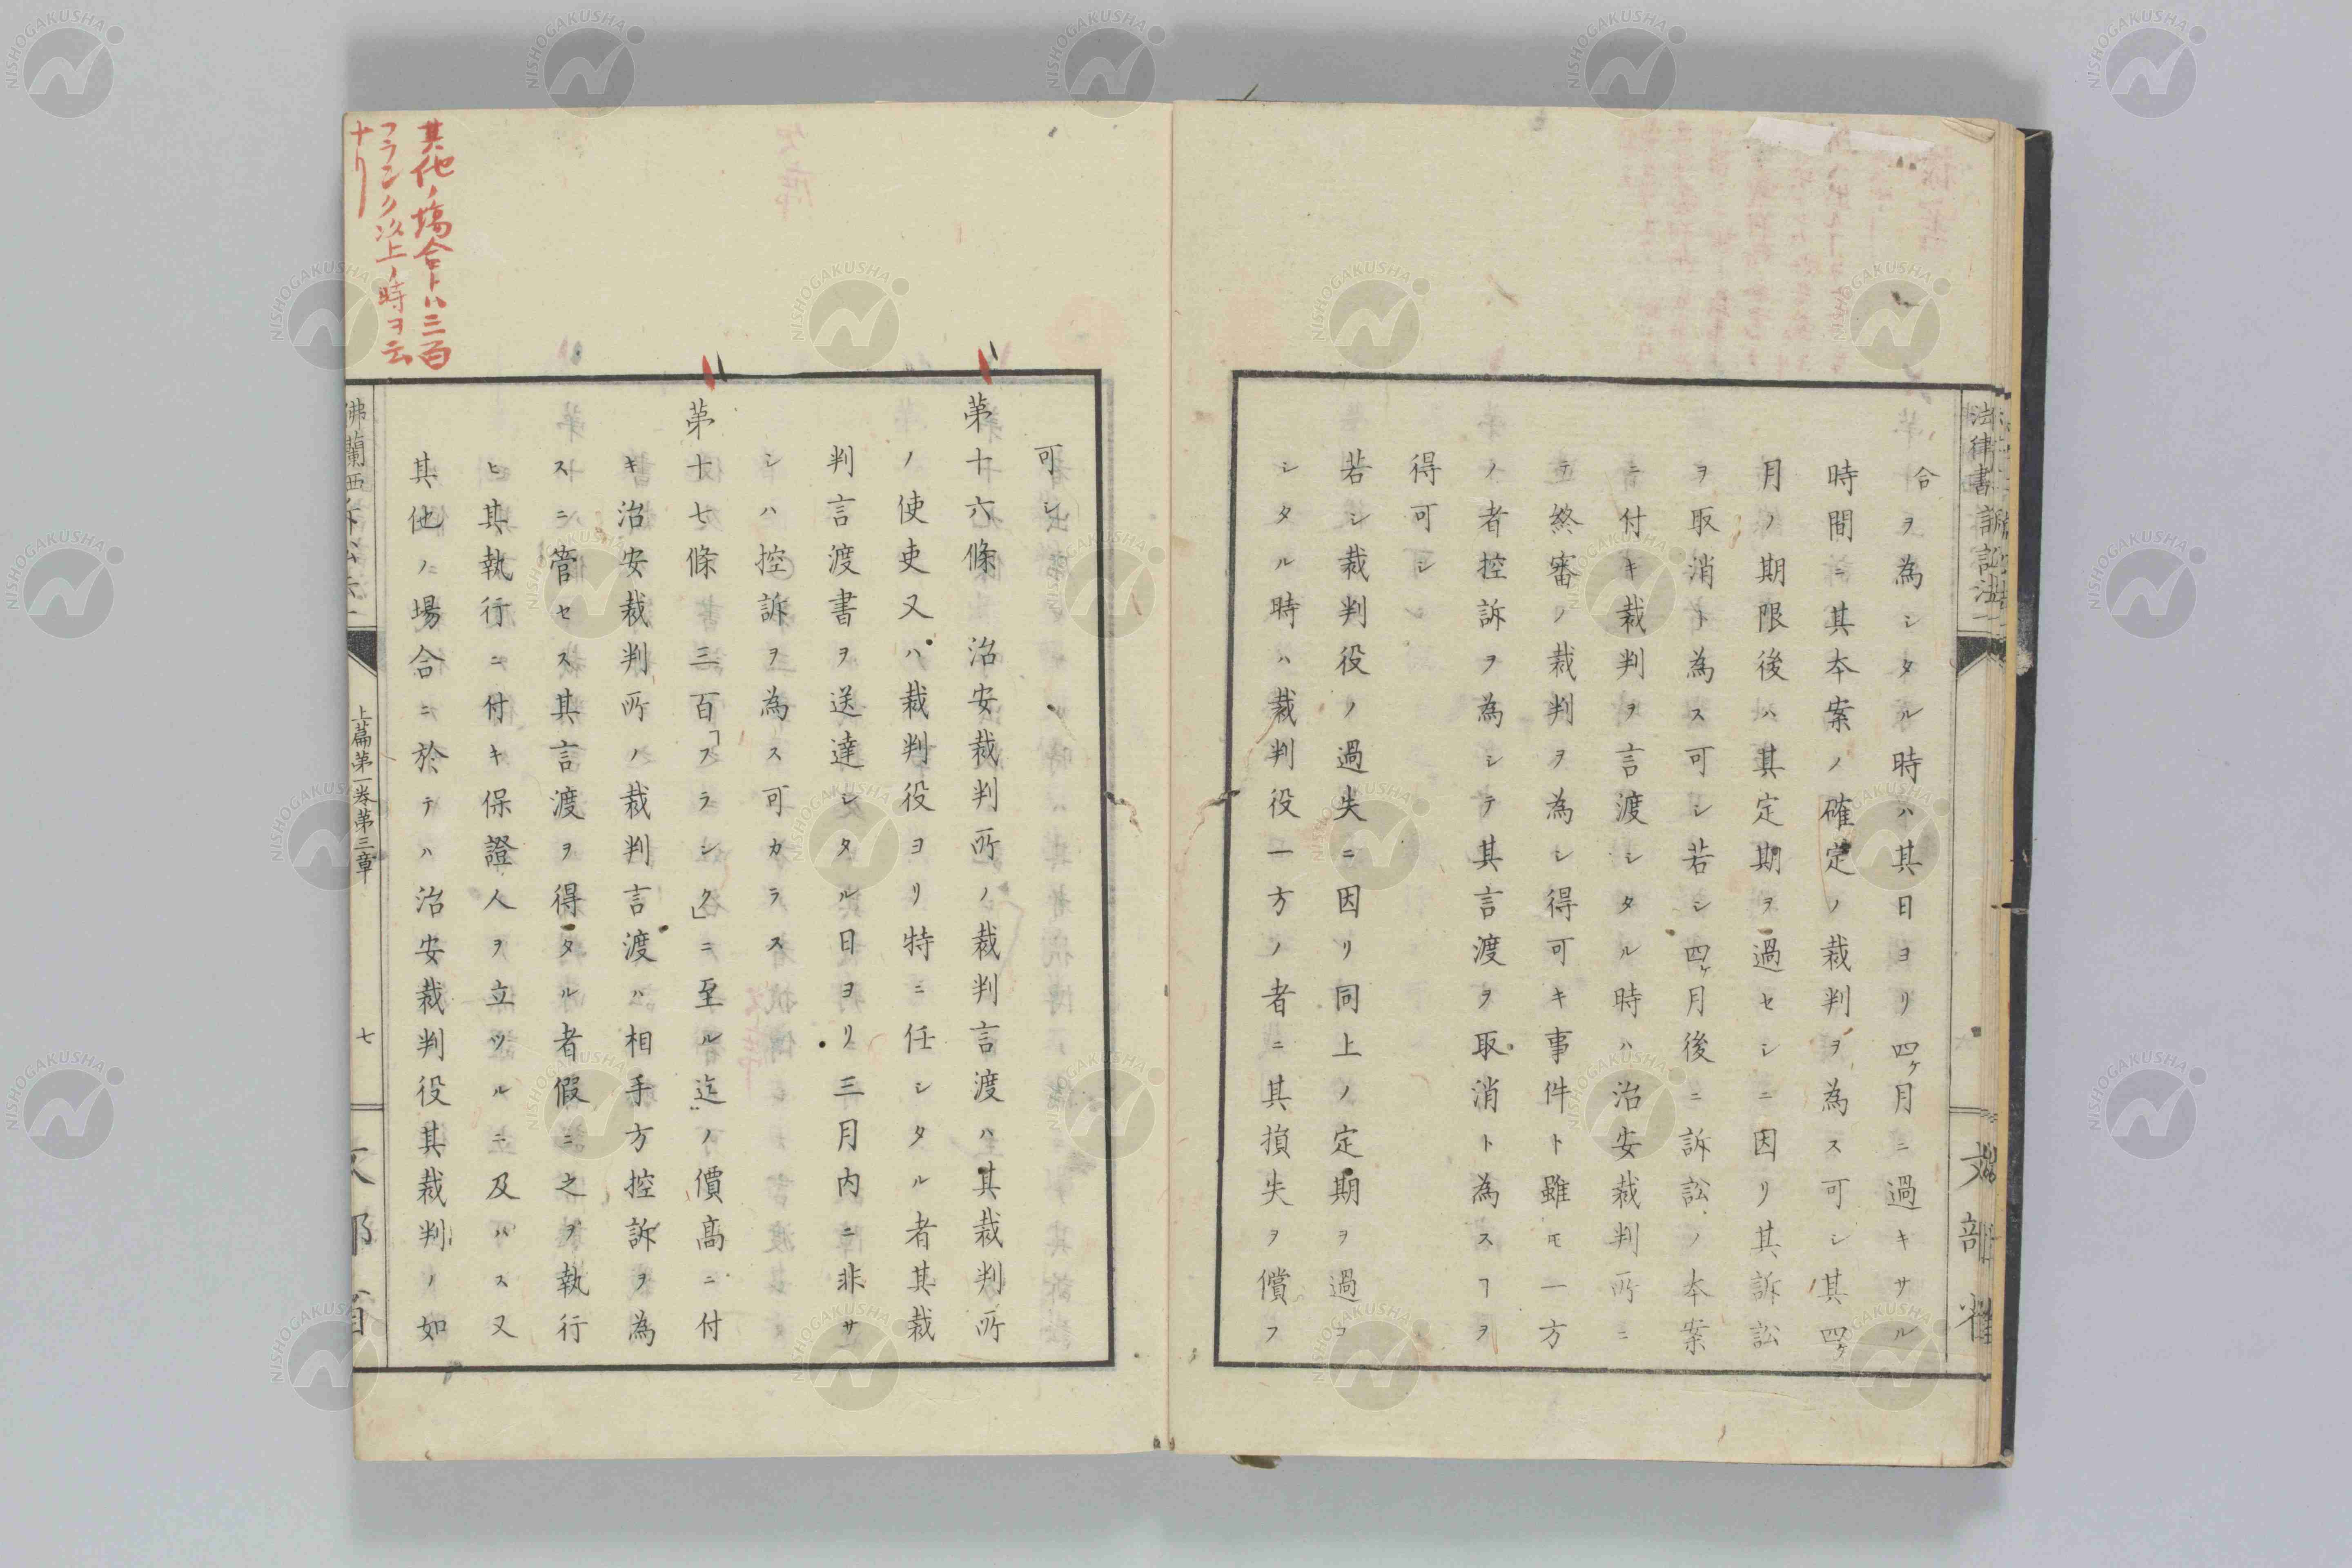 合ヲ為シタル時ハ其日ヨリ四ケ月ニ過キサル
時間ニ其本案ノ確定ノ裁判ヲ為ス可シ其四ケ
月ノ期限後ハ其定期ヲ過セシニ因リ其訴訟
ヲ取消ト為ス可シ若シ四ケ月後ニ訴訟ノ本案
ニ付キ裁判ヲ言渡シタル時ハ治安裁判所ニ
テ終審ノ裁判ヲ為シ得可キ事件ト雖モ一方
ノ者控訴ヲ為シテ其言渡ヲ取消ト為スヿヲ
得可シ
若シ裁判役ノ過失ニ因リ同上ノ定期ヲ過コ
シタル時ハ裁判役一方ノ者ニ其損失ヲ償フ
可シ
第十六條 治安裁判所ノ裁判言渡ハ其裁判所
ノ使吏又ハ裁判役ヨリ特ニ任シタル者其裁
判言渡書ヲ送達シタル日ヨリ三月内ニ非サ
シハ控訴ヲ為ス可カラス
第十七條 三百「フランク」ニ至ル迄ノ價高ニ付
キ治安裁判所ノ裁判言渡ハ相手方控訴ヲ為
スニ管セス其言渡ヲ得タル者假ニ之ヲ執行
ヒ其執行ニ付キ保證人ヲ立ツルニ及ハス又
其他ノ場合ニ於テハ治安裁判役其裁判ノ如
其他ノ塲合トハ三百
フランク以上ノ時ヲ云
ナリ
佛蘭西
上篇第一巻第三章
七
NISHOGAKUSHA